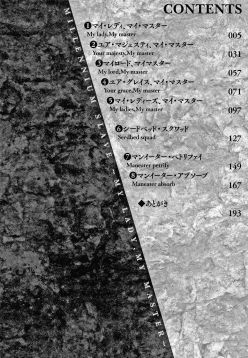 CONTENTS
❶マイ・レディ、マイ・マスター
My lady,My master
005
❷ユア・マジェスティ、マイ・マスター
Your majesty,My master
031
❸マイロード、マイマスター
My lord,My master
057
❹ユア・グレイス、マイ・マスター
Your grace,My master
071
❺マイ・レディーズ、マイ・マスター
My ladies,My master
097
❻シードベッド・スクワッド
Seedbed squad
127
❼マンイーター・ペトリファイ
Maneater petrify
149
❽マンイーター・アブソーブ
Maneater absorb
167
◆あとがき
193
MY LADY, MY MASTER～